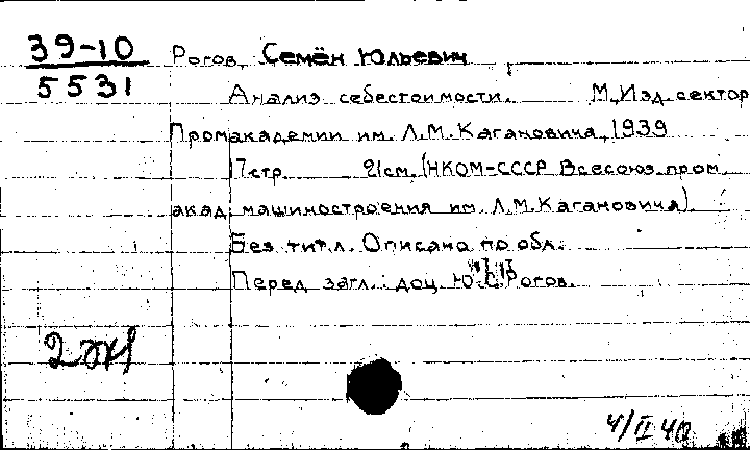 39-10
5531
Рогов, Семён Юльевич
Анализ себестоимости. М., Изд. сектор
Промакадемии им. Л.М. Кагановича, 1939
17 стр. 21 см. (НКОМ-СССР Всесоюз. пром.
акад. машиностроения им. Л.М. Кагановича)
Без тит. л. Описано по обл.
Перед загл.: доц. Рогов.
4/II 40